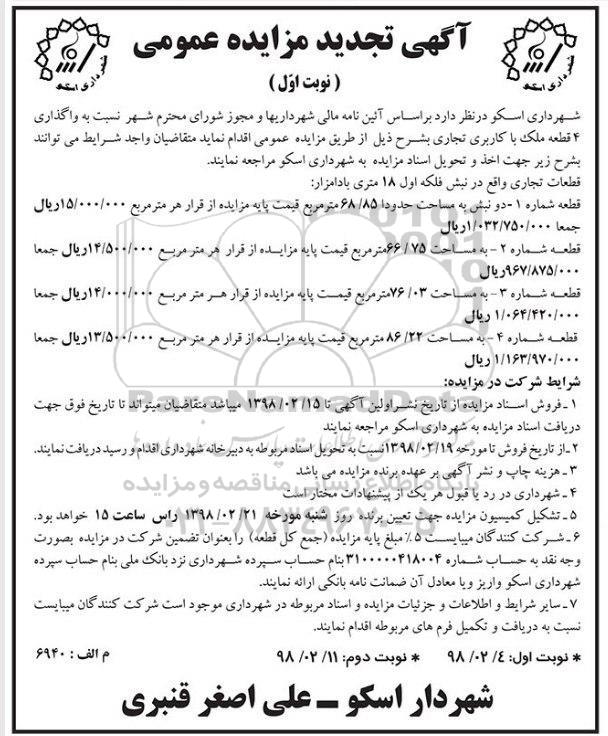 آگهی تجدید مزایده عمومی
( نوبت اوّل )
شهرداری اسکو
شهرداری اسکو
شهرداری اسکو درنظر دارد براساس آئین نامه مالی شهرداریها و مجوز شورای محترم شهر نسبت به واگذاری
۴ قطعه ملک با کاربری تجاری بشرح ذیل از طریق مزایده عمومی اقدام نماید متقاضیان واجد شرایط می توانند
بشرح زیر جهت اخذ و تحویل اسناد مزایده به شهرداری اسکو مراجعه نمایند.
قطعات تجاری واقع در نبش فلکه اول ۱۸ متری بادامزار:
قطعه شماره ۱ -دو نبش به مساحت حدودا ۸۵/ ۶۸ مترمربع قیمت پایه مزایده از قرار هر مترمربع ۱۵/۰۰۰/۰۰۰ریال
جمعا ۱/۰۳۲/۷۵۰/۰۰۰ریال
قطعه شماره ۲ - به مساحت ۷۵ /۶۶مترمربع قیمت پایه مزایده از قرار هر متر مربع ۱۴/۵۰۰/۰۰۰ریال جمعا
۹۶۷/۸۷۵/۰۰۰ریال
قطعه شماره ۳ - به مساحت ۰۳ /۷۶مترمربع قیمت پایه مزایده از قرار هر متر مربع ۱۴/۰۰۰/۰۰۰ریال جمعا
۱/۰۶۴/۴۲۰/۰۰۰ ریال
قطعه شماره ۴ - به مساحت ۲۲/ ۸۶ مترمربع قیمت پایه مزایده از قرار هر متر مربع ۱۳/۵۰۰/۰۰۰ریال جمعا
۱/۱۶۳/۹۷۰/۰۰۰ ریال
شرایط شرکت در مزایده:
۱ ـ فروش اسناد مزایده از تاریخ نشر اولین آگهی تا ۱۵/ ۰۲/ ۱۳۹۸ میباشد متقاضیان میتواند تا تاریخ فوق جهت
دریافت اسناد مزایده به شهرداری اسکو مراجعه نمایند
۲ ـ از تاریخ فروش تا مورخه ۱۹/ ۰۲/ ۱۳۹۸نسبت به تحویل اسناد مربوطه به دبیرخانه شهرداری اقدام و رسید دریافت نمایند.
۳ ـ هزینه چاپ و نشر آگهی بر عهده برنده مزایده می باشد
۴ ـ شهرداری در رد یا قبول هر یک از پیشنهادات مختار است
۵ ـ تشکیل کمیسیون مزایده جهت تعیین برنده روز شنبه مورخه ۲۱/ ۰۲/ ۱۳۹۸ راس ساعت ۱۵ خواهد بود.
۶ ـ شرکت کنندگان میبایست ۵٪ مبلغ پایه مزایده (جمع کل قطعه) را بعنوان تضمین شرکت در مزایده بصورت
وجه نقد به حساب شماره ۳۱۰۰۰۰۰۴۱۸۰۰۴بنام حساب سپرده شهرداری نزد بانک ملی بنام حساب سپرده
شهرداری اسکو واریز ویا معادل آن ضمانت نامه بانکی ارائه نمایند.
۷ ـ سایر شرایط و اطلاعات و جزئیات مزایده و اسناد مربوطه در شهرداری موجود است شرکت کنندگان میبایست
نسبت به دریافت و تکمیل فرم های مربوطه اقدام نمایند.
* نوبت اول: ۴/ ۰۲/ ۹۸ * نوبت دوم: ۱۱/ ۰۲/ ۹۸ م الف : ۶۹۴۰
شهردار اسکو ـ علی اصغر قنبری